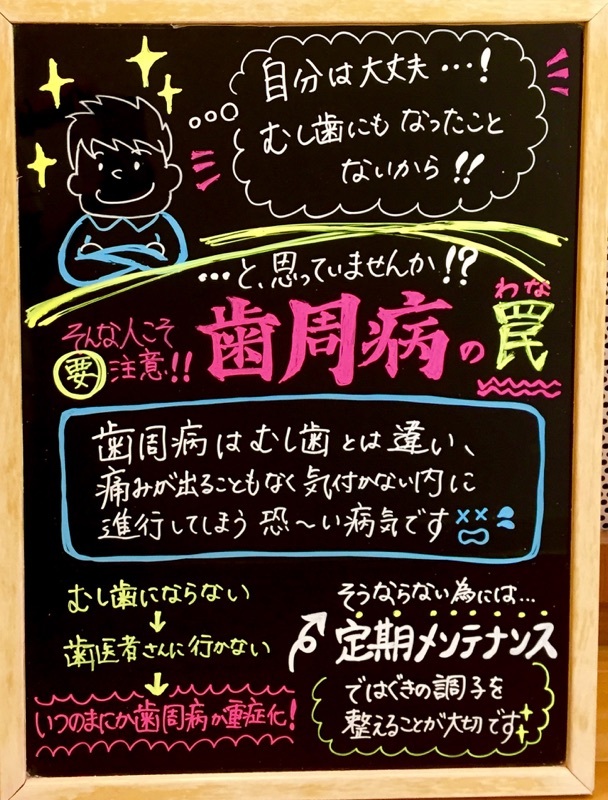 自分は大丈夫…!
むし歯にもなったこと
ないから!!
…と、思っていませんか!?
そんな人こそ
要注意!!
わな
歯周病の罠
歯周病はむし歯とは違い、
痛みが出ることもなく気付かない内に
進行してしまう恐〜い病気です
むし歯にならない
↓
歯医者さんに行かない
↓
いつのまにか歯周病が重症化!
そうならない為には…
定期メンテナンス
ではぐきの調子を
整えることが大切です